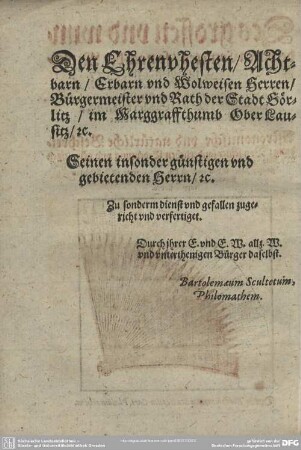 Den Ehrenvhesten / Acht-
barn / Erbarn vnd Wolweisen Herren /
Bürgermeister vnd Rath der Stadt Gör-
litz / im Marggraffthumb Ober Lau-
sitz / ꝛc.
Seinen insonder günstigen vnd
gebietenden Herrn / ꝛc.
Zu sonderm dienst vnd gefallen zuge-
richt vnd verfertiget.
Durch jhrer E. vnd E. W. allz. W.
vnd vnterthenigen Bürger daselbst.
Bartolemæum Scultetum,
Philomathem.